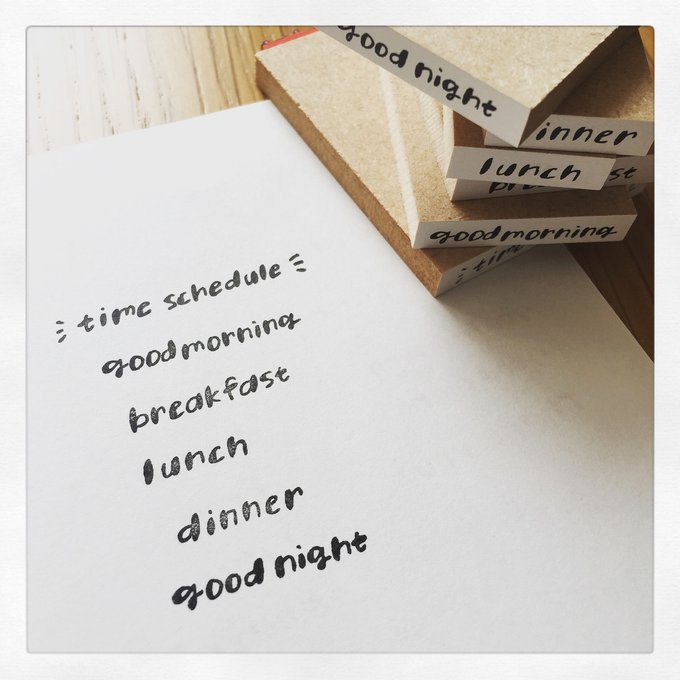 time schedule
goodmorning
breakfast
lunch
dinner
good night
good night
inner
lunch
st
goodmorning
time